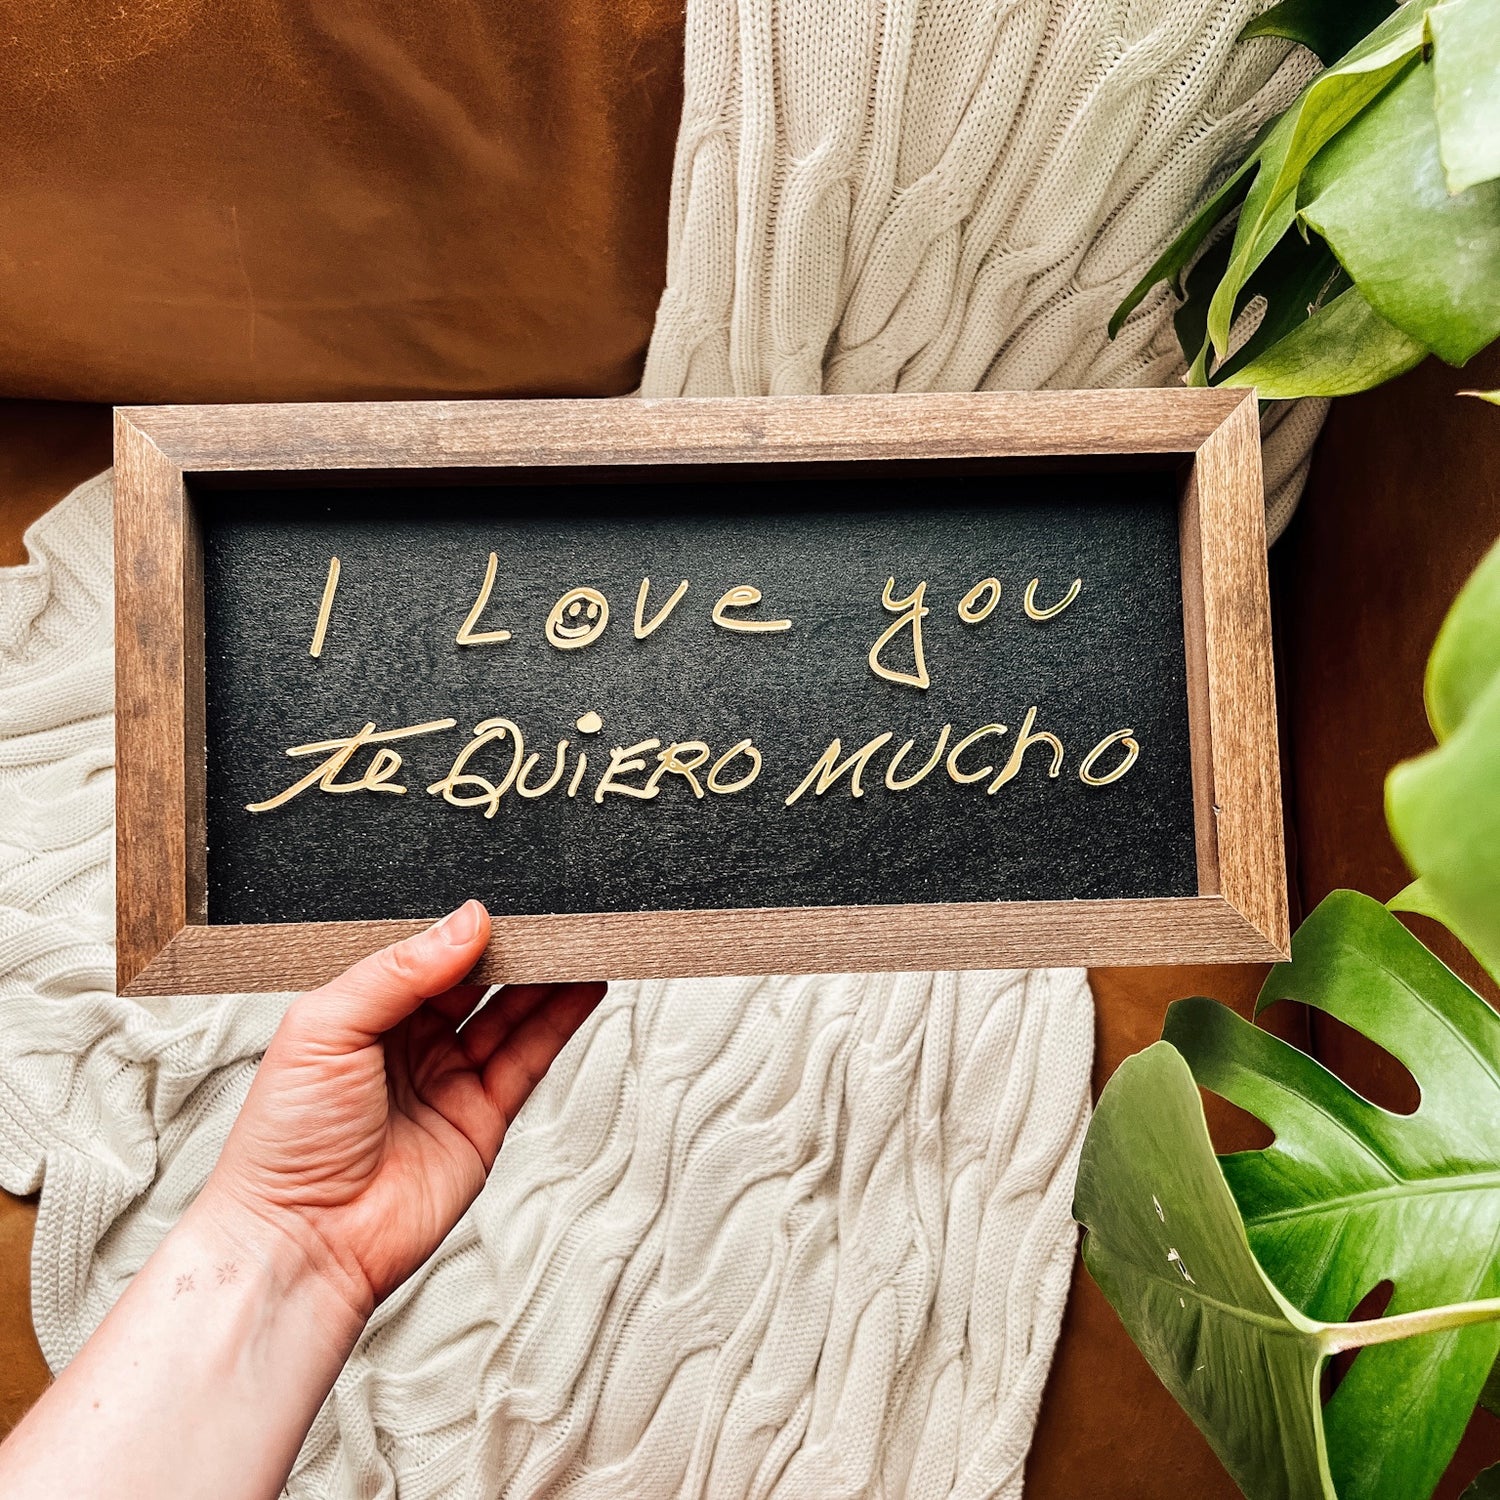 I Love you
te QUiERO MUCHO